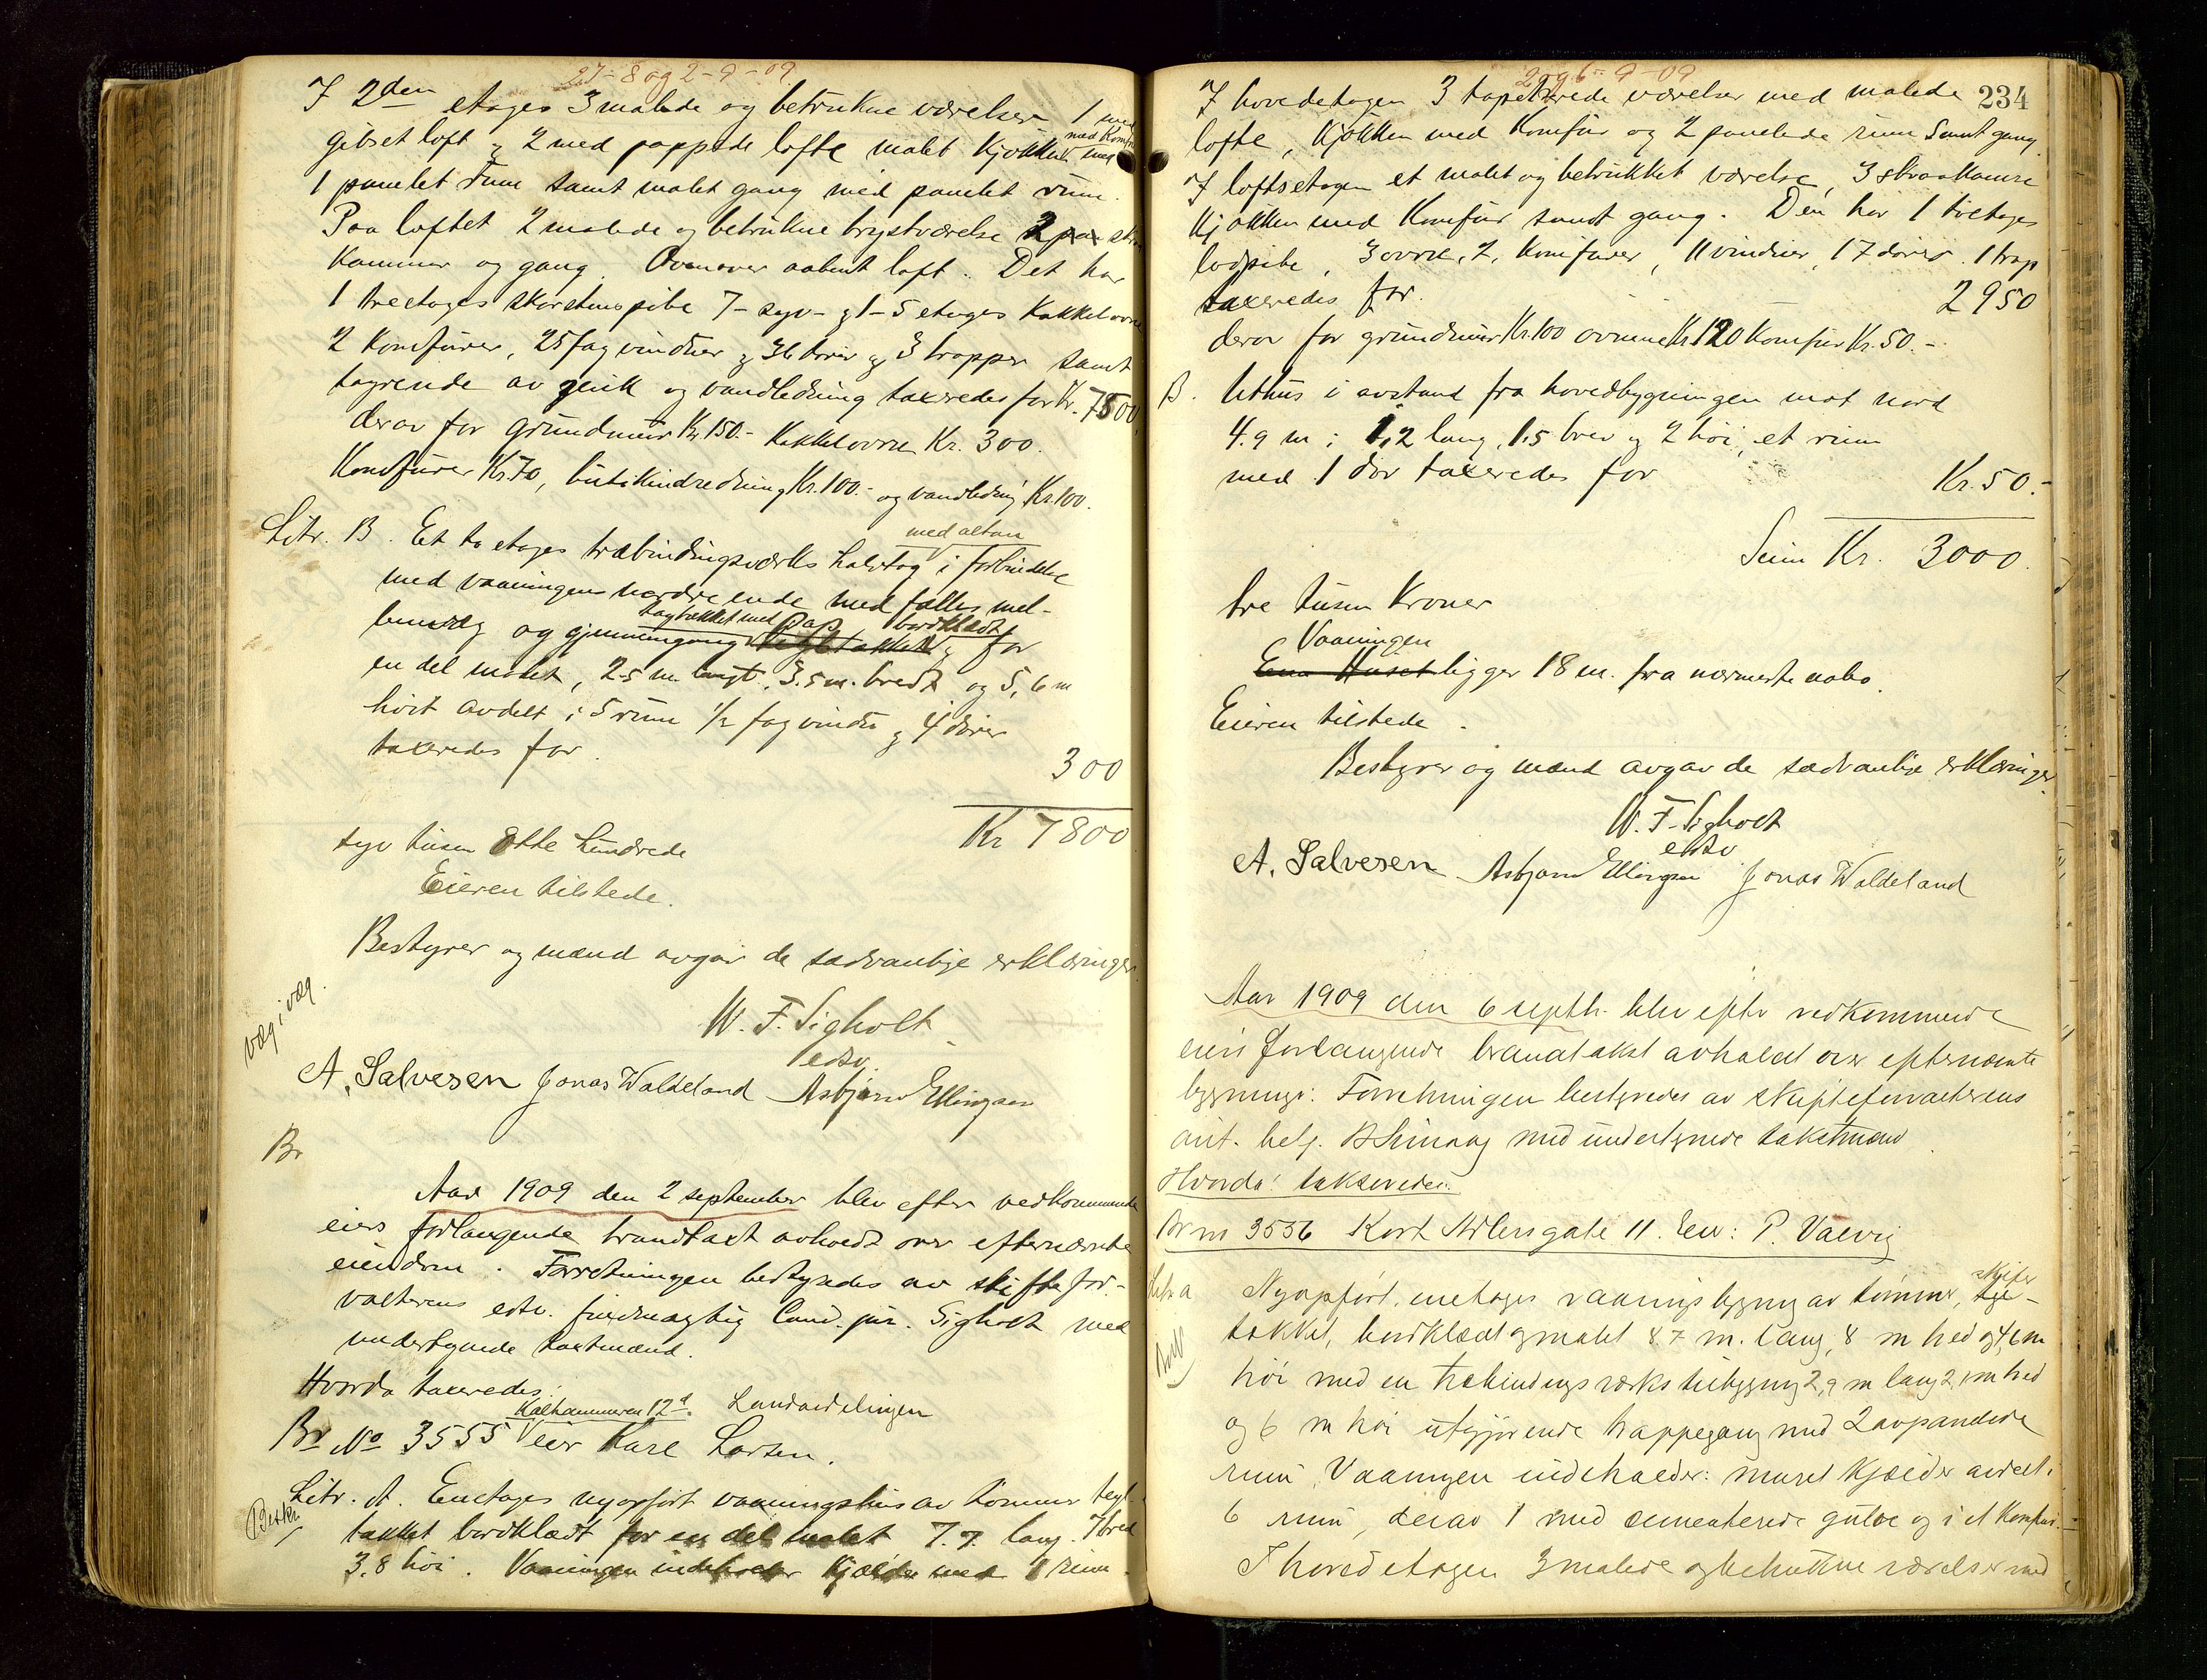 27-8 og 2-9-09
I 2den etages 3 malede og betrukne værelser 1 med
gibset loft og 2 med pappede lofte malet kjøkken med Komfur med
1 panelet rum samt malet gang med panelet rum.
Paa loftet 2 malede og betrukne brystværelse 2
Kammer og gang. Ovenover aabent loft. Det har
1 treetages skorstenspibe 7- syv- og 1-5 etages Kakkelovne
2 Komfurer, 25 fag vinduer og 36 dører og 3 trapper samt
tagrende av zink og vandledning taxeredes for Kr. 7500
derav for grundmur Kr. 150.- Kakkelovne Kr. 300.
Komfurer Kr. 70, butikindredning Kr. 100.- og vandledning Kr. 100.
med altan
Litr. B. Et to etages træbindingsværks halvtag i forbindelse
med vaaningens nordre ende med fælles mel-
tagtækket med pap bordklædt
lemvæg og gjennemgang tegltækket og for
en del malet, 2.5 m. langt, 3.5 m. bredt og 5,6 m
høit avdelt i 5 rum 1/2 fag vindu og 4 dører
taxeredes for. 300
Kr 7800
syv tusen otte hundrede
Eieren tilstede.
Bestyrer og mænd avgav de sædvanlige erklæringer.
væg i væg.
W. F. Sigholt
edsv.
A. Salvesen Jonas Waldeland Asbjørn Ellingsen
Br
Aar 1909 den 2 september blev efter vedkommende
eiers forlangende brandtaxt avholdt over efternævnte
eiendom. Forretningen bestyredes av skiftefor-
valterens edsv. fuldmægtig Cand. jur. Sigholt med
undertegnede taxtmænd.
Hvorda taxeredes:
Kalhammeren 12d. Landavdelingen
Br No 3555 eier Karl Larsen.
Litr. A. Enetages nyopført vaaningshus av tømmer tegl-
Beskr.
tækket bordklædt for en del malet 7.7 lang. 7 bred
3.8 høi. Vaaningen indeholder Kjælder med 1 rum.
2 og 6-9-09
234
I hovedetagen 3 tapetserede værelser med malede
lofte, Kjøkken med Komfur og 2 panelede rum samt gang.
I loftsetagen et malet og betrukket værelse, 3 skraakamre
Kjøkken med Komfur samt gang. Den har 1 toetages
lodpibe, 3 ovne, 2 Komfurer, 11 vinduer, 17 dører. 1 trap
taxeredes for. 2950
derav for grundmur Kr. 100 ovnene Kr. 120 Komfur Kr. 50.-
B. Uthus i avstand fra hovedbygningen mot nord
4.9 m; 1,2 lang, 1.5 bred og 2 høi, et rum
med 1 dør taxeredes for Kr. 50.-
Sum Kr. 3000.
tre tusen Kroner
Vaaningen
Huset ligger 18 m. fra nærmeste nabo.
Eieren tilstede.
Bestyrer og mænd avgav de sædvanlige erklæringer.
W. F. Sigholt
edsv.
A. Salvesen Asbjørn Ellingsen Jonas Waldeland
Aar 1909 den 6 septbr. blev efter vedkommende
eiers forlangende brandtakst avholdt over efternævnte
bygninger. Forretningen bestyredes av skifteforvalterens
aut. belj. med undertegnede takstmænd.
Hvorda taksertes:
Br no 3556 Kort Adlersgate 11. Eier: P. Valvig
Litr a Nyopført, enetages vaaningsbygning av tømmer, skifer
tækket, bordklædt og malet 8.7 m. lang, 8 m bred og 4,6 m
høi med en træbindingsværks tilbygning 2,9 m lang 2,1 m bred
og 6 m høi utgjørende trappegang med 2 avpanelede
rum. Vaaningen indeholder: muret Kjælder avdelt i
6 rum, derav 1 med cementerede gulve og i et Komfur.
I hovedetagen 3 malede og betrukne værelser med